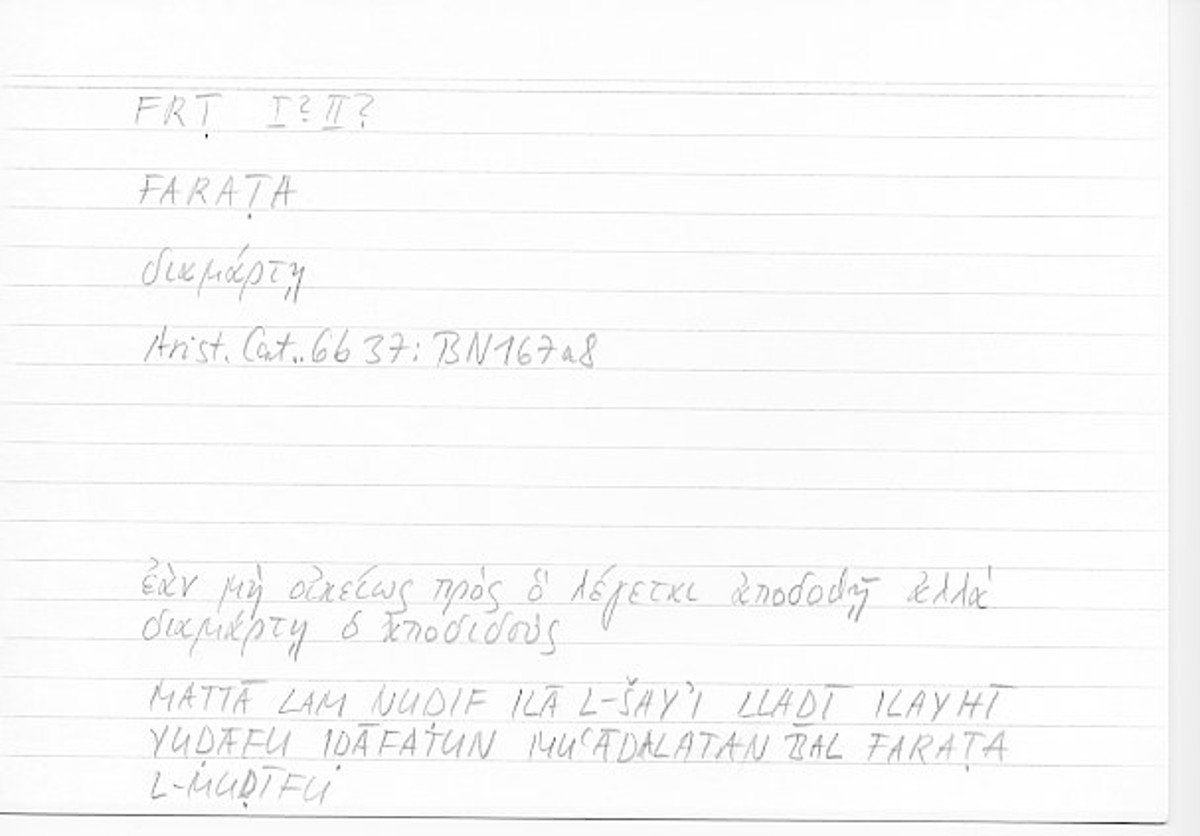 FRṬ I? II?
FARAṬA
διαμάρτῃ
Arist. Cat. 6b 37: BN 167a8
ἐὰν μὴ οἰκείως πρὸς ὃ λέγεται ἀποδοθῇ ἀλλὰ
διαμάρτῃ ὁ ἀποδιδοὺς
MATTĀ LAM NUḌIF ILĀ L-ŠAY'I LLAḎĪ ILAYHI
YUḌĀFU IḌĀFATUN MU'ĀDALATAN BAL FARAṬA
L-MUḌĪFU